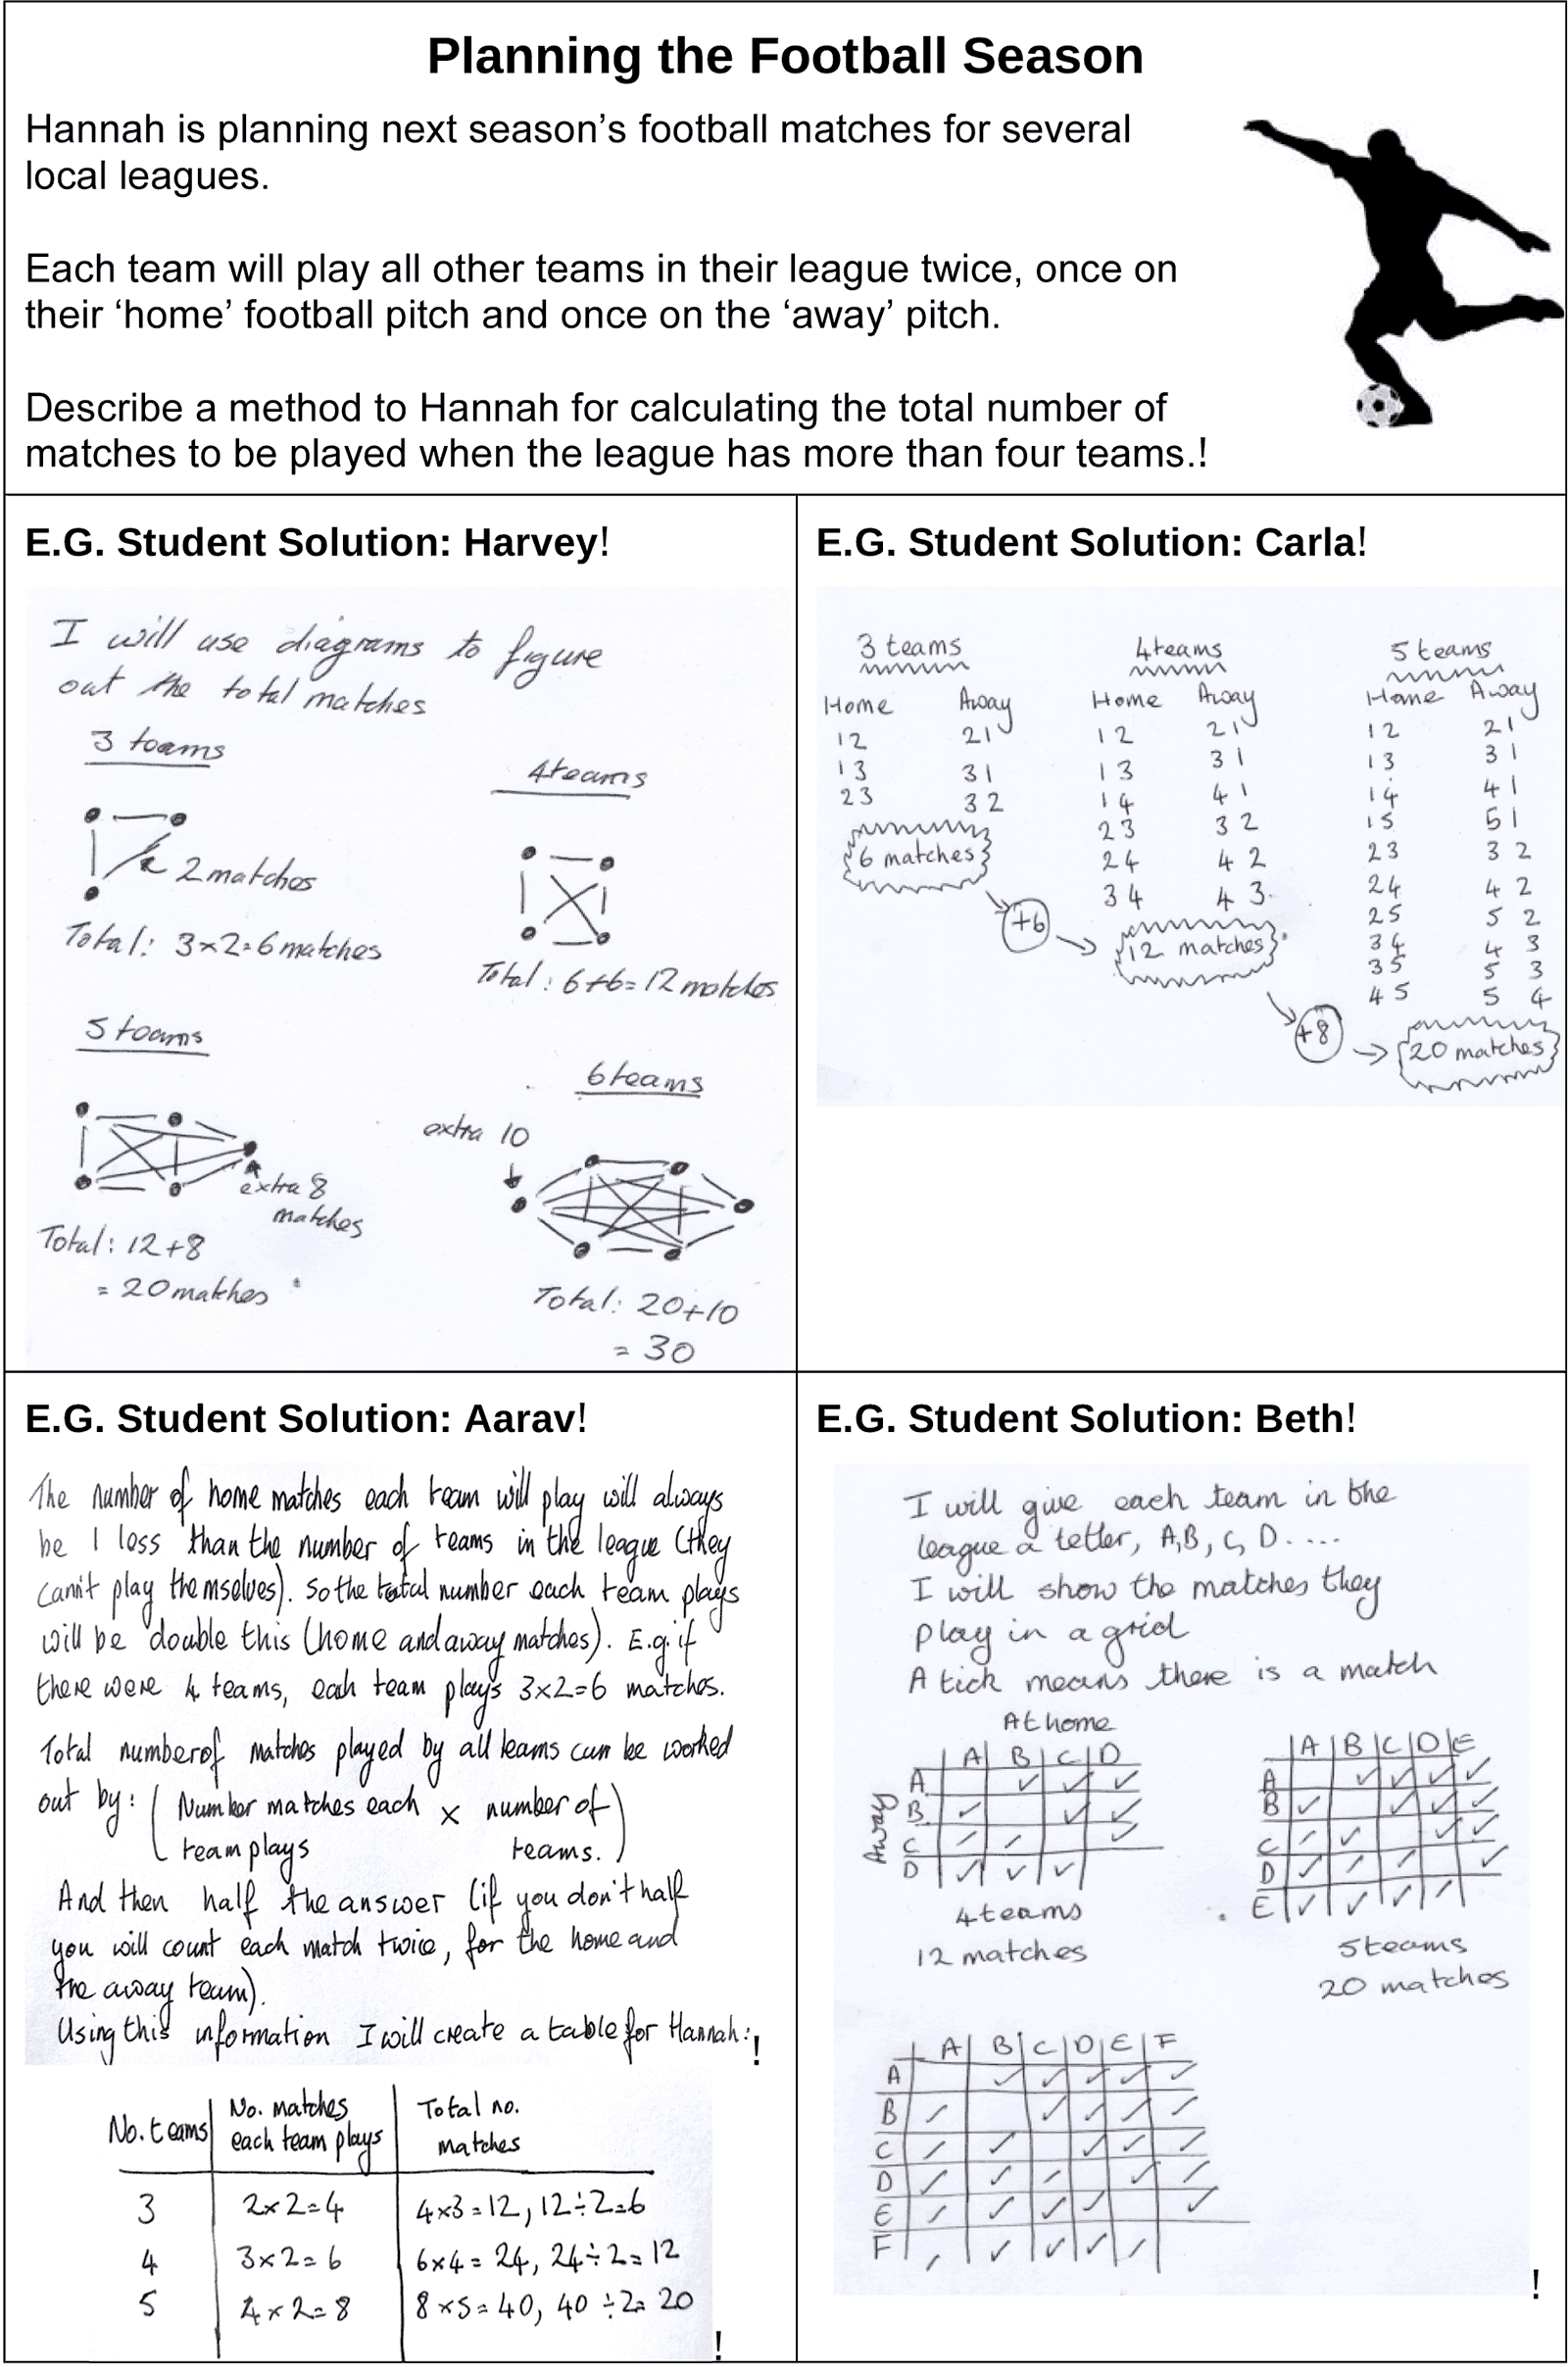 Planning the Football Season
Hannah is planning next season’s football matches for several
local leagues.
Each team will play all other teams in their league twice, once on
their ‘home’ football pitch and once on the ‘away’ pitch.
Describe a method to Hannah for calculating the total number of
matches to be played when the league has more than four teams.!
E.G. Student Solution: Harvey!
I will use diagrams to figure
out the total matches
3 teams
2 matches
Total: 3×2=6 matches
4 teams
Total: 6+6=12 matches
5 teams
extra 8
matches
Total: 12+8
= 20 matches
6 teams
extra 10
Total: 20+10
= 30
E.G. Student Solution: Carla!
3 teams
Home Away
12 21
13 31
23 32
6 matches
+6
4 teams
Home Away
12 21
13 31
14 41
23 32
24 42
34 43
12 matches
+8
5 teams
Home Away
12 21
13 31
14 41
15 51
23 32
24 42
25 52
34 43
35 53
45 54
20 matches
E.G. Student Solution: Aarav!
The number of home matches each team will play will always
be 1 less than the number of teams in the league (they
can't play themselves). So the total number each team plays
will be double this (home and away matches). E.g. if
there were 4 teams, each team plays 3×2=6 matches.
Total number of matches played by all teams can be worked
out by: (Number matches each × number of
team plays teams.)
And then half the answer (if you don't half
you will count each match twice, for the home and
the away team).
Using this information I will create a table for Hannah:!
No. teams No. matches each team plays Total no. matches
3 2×2=4 4×3=12, 12÷2=6
4 3×2=6 6×4=24, 24÷2=12
5 4×2=8 8×5=40, 40÷2=20
!
E.G. Student Solution: Beth!
I will give each team in the
league a letter, A, B, C, D....
I will show the matches they
play in a grid
A tick means there is a match
At home
A B C D
Away
A ✓ ✓ ✓
B ✓ ✓ ✓
C ✓ ✓ ✓
D ✓ ✓ ✓
4 teams
12 matches
A B C D E
A ✓ ✓ ✓ ✓
B ✓ ✓ ✓ ✓
C ✓ ✓ ✓ ✓
D ✓ ✓ ✓ ✓
E ✓ ✓ ✓ ✓
5 teams
20 matches
A B C D E F
A ✓ ✓ ✓ ✓ ✓
B ✓ ✓ ✓ ✓ ✓
C ✓ ✓ ✓ ✓ ✓
D ✓ ✓ ✓ ✓ ✓
E ✓ ✓ ✓ ✓ ✓
F ✓ ✓ ✓ ✓ ✓
!